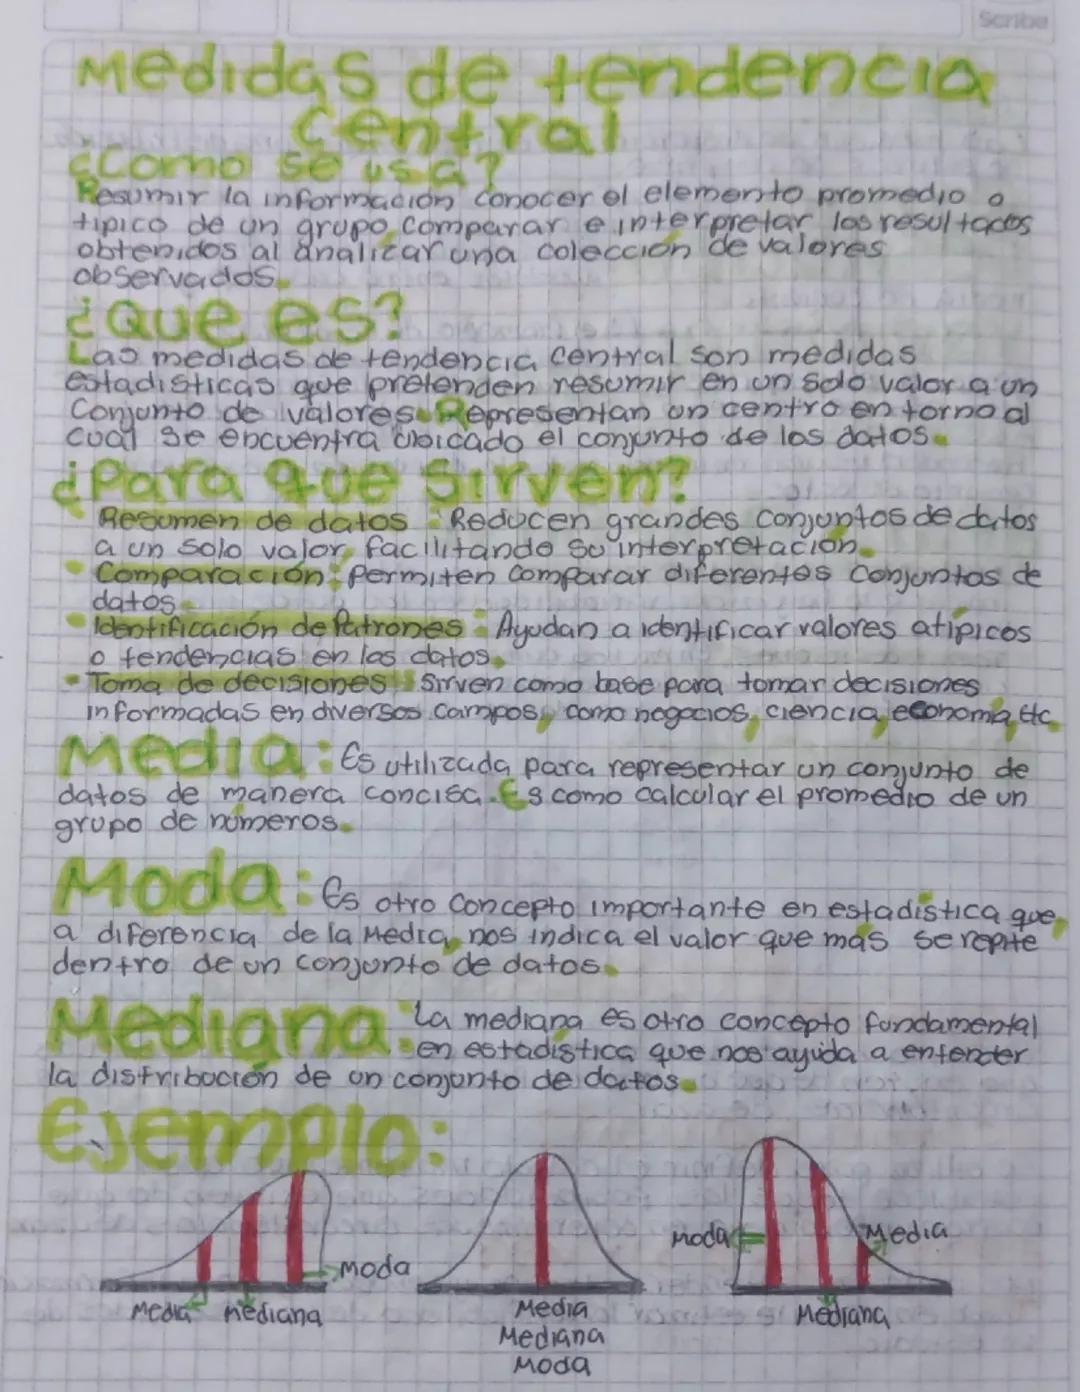 Scribe
Medidas de tendencia
Central
¿Como se usa?
Resumir la información conocer el elemento promedio o
tipico de un grupo, comparar e interpretar los resultados
obtenidos al analicar una colección de valores
observados.
¿Que es?
Las medidas de tendencia central son medidas
estadisticas que pretenden resumir en un solo valor a un
Conjunto de valores. Representan un centro en torno al
cual se encuentra ubicado el conjunto de los datos.
¿Para que Sirven?
Resumen de datos: Reducen grandes conjuntos de datos
a un solo valor, facilitando su interpretación.
• Comparación: Permiten comparar diferentes conjuntos de
datos.
• Identificación de Patrones: Ayudan a identificar valores atípicos
o tendencias en los datos.
• Toma de decisiones: Sirven como base para tomar decisiones
informadas en diversos campos, como negocios, ciencia, economía, etc
Media: Es utilizada para representar un conjunto de
datos de manera concisa. Es como calcular el promedio de un
grupo de números.
Moda: Es otro concepto importante en estadística que,
a diferencia de la Media, nos indica el valor que más se repite
dentro de un conjunto de datos.
Mediana: La mediana es otro concepto fundamental
en estadística que nos ayuda a entender
la distribución de un conjunto de datos.
Ejemplo:
Moda
Media Mediana
Media
Mediana
Moda
Moda
Media
Mediana